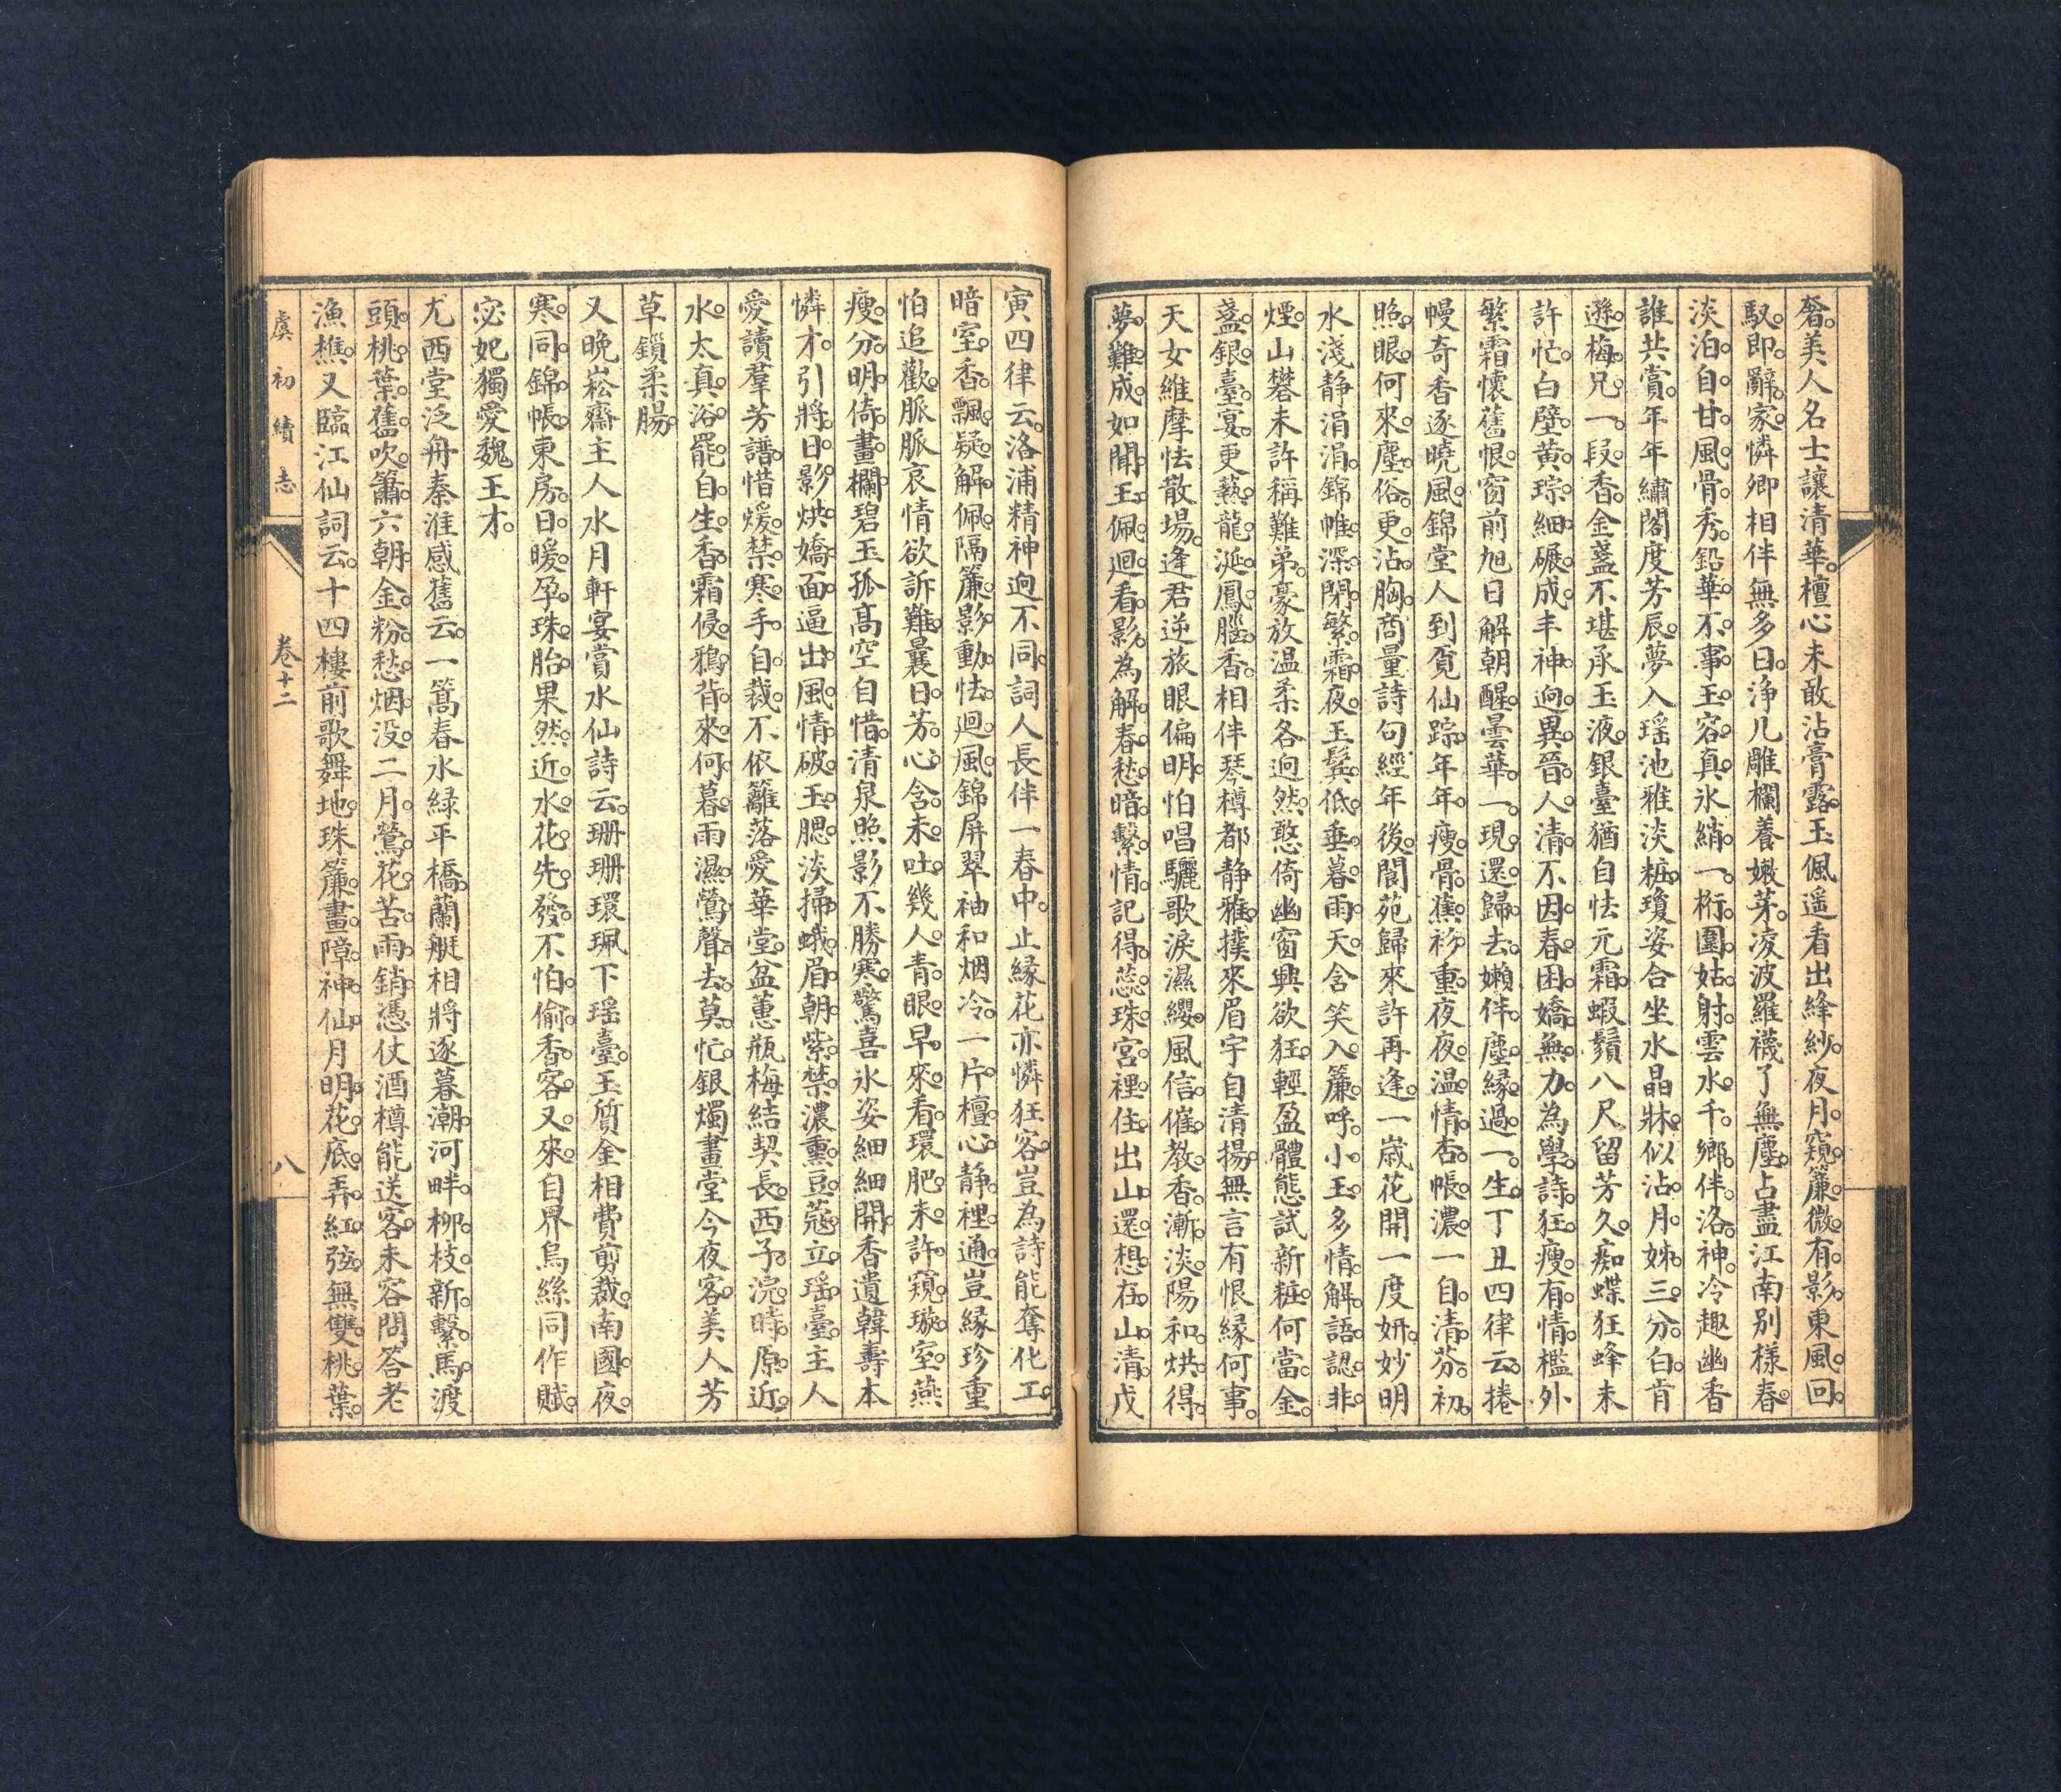 奢美人名士讓清華檀心未敢沾膏露玉佩遥看出絳紗夜月窺簾微有影東風回
馭即辭家憐卿相伴無多日淨几雕欄養嫩芽凌波羅襪了無塵占盡江南别樣春
淡泊自甘風骨秀鉛華不事玉容真氷綃一桁圍姑射雲水千鄉伴洛神冷趣幽香
誰共賞年年繡閣度芳辰夢入瑶池雅淡粧瓊姿合坐水晶牀似沾月姊三分白肯
遜梅兄一段香金盞不堪承玉液銀臺猶自怯元霜蝦鬚八尺留芳久痴蝶狂蜂未
許忙白璧黄琮細碾成丰神迥異晉人清不因春困嬌無力為學詩狂瘦有情檻外
繁霜懷舊恨窗前旭日解朝醒曇華一現還歸去嬾伴塵緣過一生丁丑四律云捲
幔奇香逐曉風錦堂人到覓仙踪年年瘦骨蕉衫重夜夜温情杏帳濃一自清芬初
照眼何來塵俗更沾胸商量詩句經年後閬苑歸來許再逢一嵗花開一度妍妙明
水淺静涓涓錦帷深閉繁霜夜玉鬓低垂暮雨天含笑入簾呼小玉多情解語認非
煙山礬未許稱難弟豪放温柔各迥然憨倚幽窗興欲狂輕盈體態試新粧何當金
盞銀臺宴更爇龍涎鳳腦香相伴琴樽都静雅撲來眉宇自清揚無言有恨緣何事
天女維摩怯散場逢君逆旅眼偏明怕唱驪歌淚濕纓風信催教香漸淡陽和烘得
夢難成如聞玉佩迴看影為解春愁暗繫情記得蕊珠宮裡住出山還想在山清戊
寅四律云洛浦精神迥不同詞人長伴一春中止緣花亦憐狂客豈為詩能奪化工
暗室香飄疑解佩隔簾影動怯迴風錦屏翠袖和烟冷一片檀心静裡通豈緣珍重
怕追歡脈脈哀情欲訴難曩日芳心含未吐幾人青眼早來看環肥未許窺璇室燕
瘦分明倚畫欄碧玉孤高空自惜清泉照影不勝寒驚喜氷姿細細開香遺韓壽本
憐才引將日影烘嬌面逼出風情破玉腮淡掃蛾眉朝紫禁濃熏豆蔻立瑶臺主人
愛讀羣芳譜惜煖禁寒手自裁不依籬落愛華堂盆蕙瓶梅結契長西子浣時原近
水太真浴罷自生香霜侵鴉背來何暮雨濕鶯聲去莫忙銀燭畫堂今夜客美人芳
草鎖柔腸
又晩崧齋主人水月軒宴賞水仙詩云珊珊環珮下瑶臺玉質金相費剪裁南國夜
寒同錦帳東房日暖孕珠胎果然近水花先發不怕偷香客又來自界烏絲同作賦
宓妃獨愛魏王才
尤西堂泛舟秦淮感舊云一篙春水緑平橋蘭艇相將逐暮潮河畔柳枝新繫馬渡
頭桃葉舊吹簫六朝金粉愁烟没二月鶯花苦雨銷憑仗酒樽能送客未容問答老
漁樵又臨江仙詞云十四樓前歌舞地珠簾畫障神仙月明花底弄紅弦無雙桃葉
虞初續志
卷十二
八